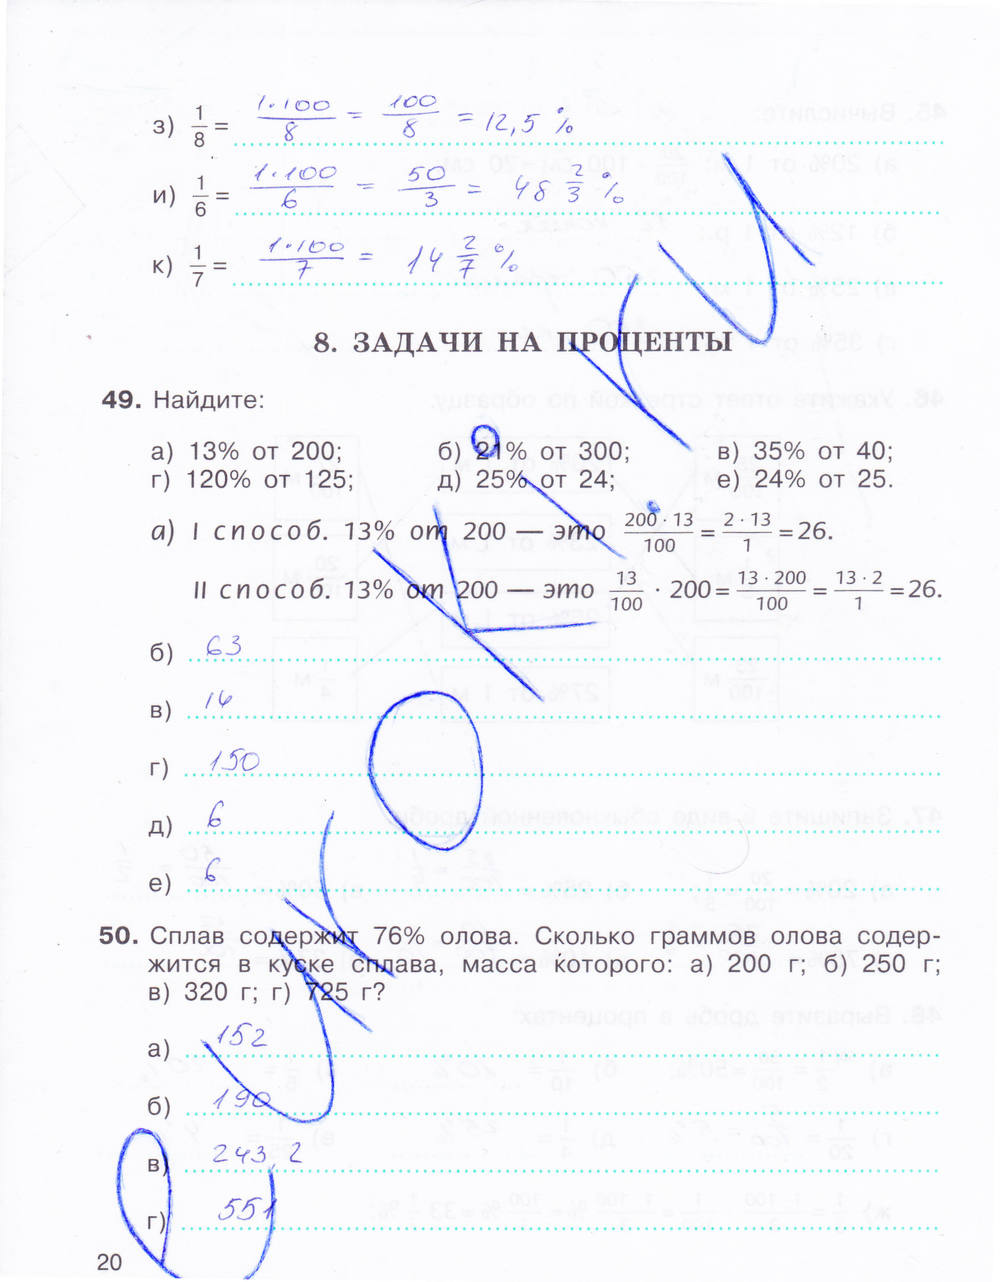 з) 1/8 = 1·100/8 = 100/8 = 12,5 %
и) 1/6 = 1·100/6 = 50/3 = 48 2/3 %
к) 1/7 = 1·100/7 = 14 2/7 %
8. ЗАДАЧИ НА ПРОЦЕНТЫ
49. Найдите:
а) 13% от 200; б) 21% от 300; в) 35% от 40;
г) 120% от 125; д) 25% от 24; е) 24% от 25.
а) I способ. 13% от 200 — это 200 · 13/100 = 2 · 13/1 = 26.
II способ. 13% от 200 — это 13/100 · 200 = 13 · 200/100 = 13 · 2/1 = 26.
б) 63
в) 14
г) 150
д) 6
е) 6
50. Сплав содержит 76% олова. Сколько граммов олова содер-
жится в куске сплава, масса которого: а) 200 г; б) 250 г;
в) 320 г; г) 725 г?
а) 152
б) 190
в) 243,2
г) 551
20